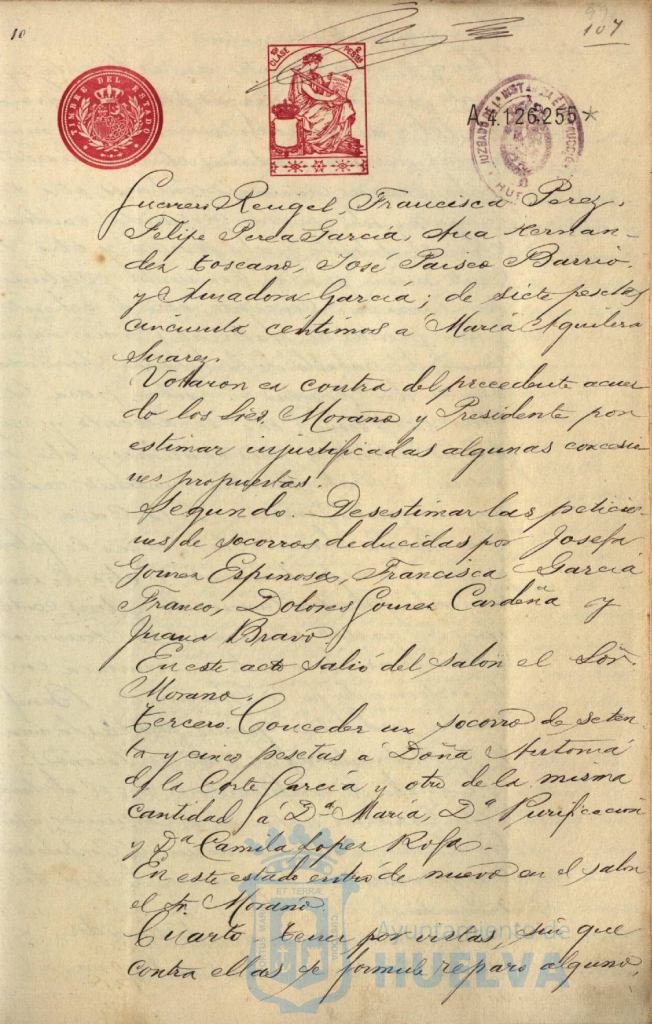 10
107
TIMBRE DEL ESTADO
CLASE
PESETAS
A.4.126.255*
JUZGADO DE 1ª INSTANCIA E INSTRUCCIÓN
HUELVA
Guerrero Rengel, Francisca Perez,
Felipe Perea Garcia, Ana Hernan-
dez Toscano, José Barrio,
y Amadora Garcia; de siete pesetas
cincuenta céntimos á Maria Aguilera
Suarez.
Votaron en contra del precedente acuer
do los Sres. Morano y Presidente por
estimar injustificadas algunas concesio
nes propuestas.
Segundo. Desestimar las peticio-
nes de socorros deducidas por Josefa
Gomez Espinosa, Francisca Garcia
Franco, Dolores Gomez Cardeña y
Juana Bravo.
En este acto salió del salon el Sor.
Morano.
Tercero. Conceder un socorro de seten-
ta y cinco pesetas á Doña Antonia
de la Corte Garcia y otro de la misma
cantidad á Dª Maria, Dª Purificacion
y Dª Camila Lopez Rofa.
En este estado entró de nuevo en el salon
el Sr. Morano.
Cuarto. Tener por vistas, sin que
contra ellas se formule reparo alguno,
Ayuntamiento de
HUELVA